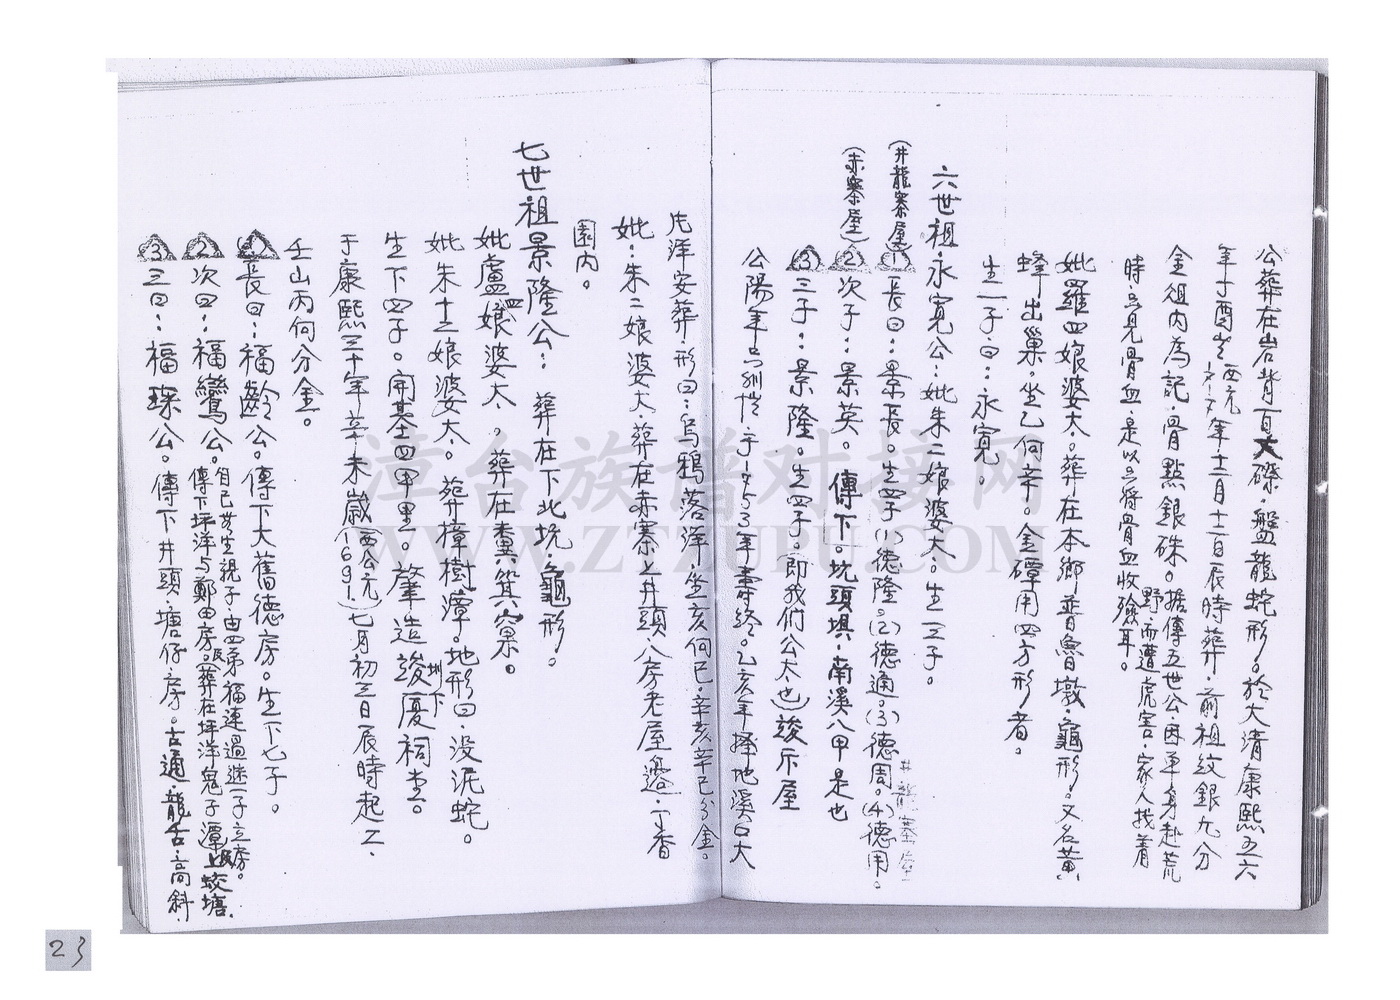 公葬在岩背百大磜·盤龍蛇形。於大清康熙五六
年丁酉岁西元年十二月十二日辰時葬·前祖紋銀九分
金祖內為記·骨點銀硃。据傳五世公·因单身赴荒
野·而遭虎害·家人找着
時·只見骨血·是以只將骨血收殮耳。
妣羅四娘婆太。葬在本鄉普魯墩·龜形·又名黃
蜂出巢。坐乙向辛。金磹用四方形者。
生一子曰：永寬。
六世祖·永寬公：妣朱二娘婆太。生三子。
(井龍寨屋)①長曰：景長。生四子(1)德隆。(2)德通。(3)德周。(4)德用。
井龍寨屋
(赤寨屋)②次子：景英。傳下。坑頭埧·南溪八甲是也
③三子：景隆。生四子。即我们公太也)竣示屋
公陽年手1753年壽終。乙亥年擇地溪口大
庄洋安葬·形曰：烏鴉落洋·坐亥向巳·辛亥辛巳分金。
妣：朱二娘婆太·葬在赤寨上井頭八房老屋邊·丁香
園內。
七世祖景隆公：葬在下北坑·龜形。
妣盧四娘婆太。葬在糞箕窠。
妣朱十二娘婆太。葬樟樹潭。地形曰·没泥蛇。
生下四子。開基四甲里。肇造圳下竣優祠堂。
于康熙三十年辛未歲(西公元1691)七月初三日辰時起工、
壬山丙向分金。
①長曰：福齡公。傳下大舊德房。生下七子。
②次曰：福鸞公。自已若生親子由四弟福連過继一子立房。
傳下坪洋与鄭田房。葬在坪洋鬼子潭上蛟塘·
③三曰：福琛公。傳下井頭·塘仔房。古通·龍舌·高斜·
漳台族谱对接网
WWW.ZTZUPU.COM
23